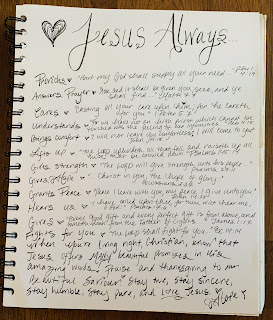 Jesus Always...
Provides ♥ "But my God shall supply all your need..." Phil 4:19
Answers Prayer ♥ "Ask, and it shall be given you; seek, and ye shall find..." Matthew 7:7
Cares ♥ "Casting all your care upon him; for he careth for you" 1 Peter 5:7
Understands ♥ "For we have not an high priest which cannot be touched with the feeling of our infirmities..." Heb 4:15
Brings Comfort ♥ "I will not leave you comfortless: I will come to you" John 14:18
Lifts up ♥ "The Lord upholdeth all that fall, and raiseth up all those that be bowed down." Psalms 145:14
Gives strength ♥ "The Lord will give strength unto his people..." Psalms 29:11
Gives Hope ♥ "Christ in you, the hope of glory." Colossians 1:27
Grants Peace ♥ "Peace I leave with you, my peace I give unto you" John 14:27
Hears us ♥ "I have called upon thee, for thou wilt hear me, O God"
Gives ♥ "Every good gift and every perfect gift is from above, and cometh down from the Father of lights" James 1:17
Fights for You ♥ "The Lord shall fight for you." Ex 14:14
When you're living right, Christian, know that
Jesus offers Many beautiful promises in His
amazing Word! Praise and thanksgiving to our
Beautiful Saviour! Stay true, stay sincere,
stay humble, stay pure, and Love Jesus!